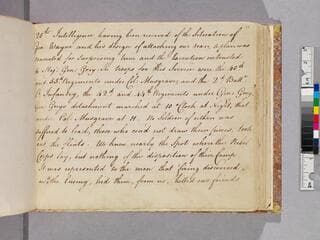 20th Intelligence having been received of the Situation of
Gen Wayne and his design of attacking our rear, a plan was
concerted for Surprising him and the Execution entrusted
to Maj. Gen. Grey. The troops for this Service were the 40th
and 55th Regiments under Col. Musgrave, and the 2d Battn
Lt Infantry, the 42d and 44th Regiments under Gen. Grey.
Gen Grey's detachment marched at 10 o'Clock at Night, that
under Col. Musgrave at 11. No Soldier of either was
suffered to load, those who could not draw their pieces, took
out the flints. We knew nearly the Spot where the Rebel
Corps lay, but nothing of the disposition of their Camp.
It was represented to the men that firing discovered
us to the Enemy, hid them from us, killed our friends